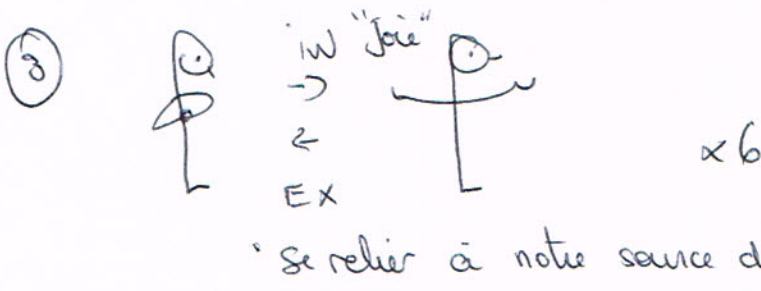 3
IN "Joie"
→
←
EX
×6
· Se relier à notre source d